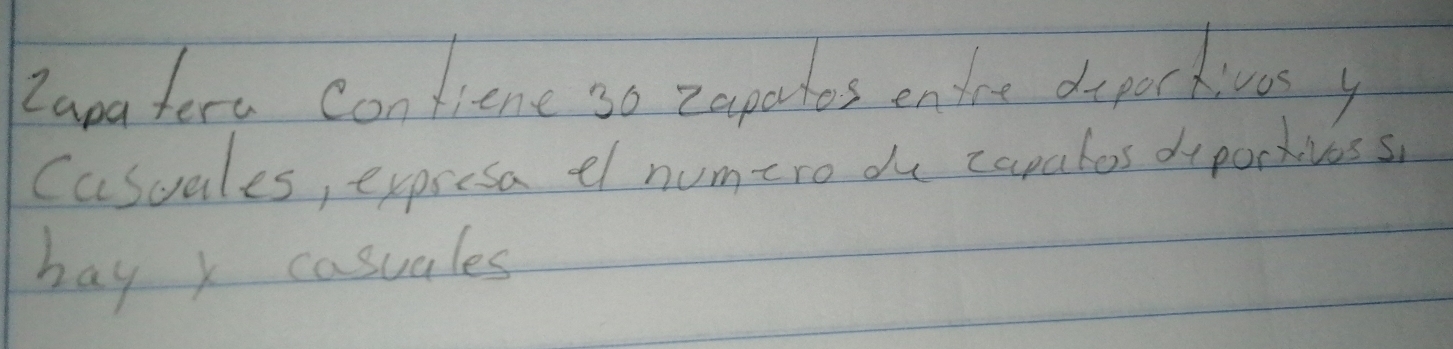 Zapatera contiene 30 zapatos entre deportivos y
Casuales, expresa el numero de zapatos deportivos si
hay x casuales